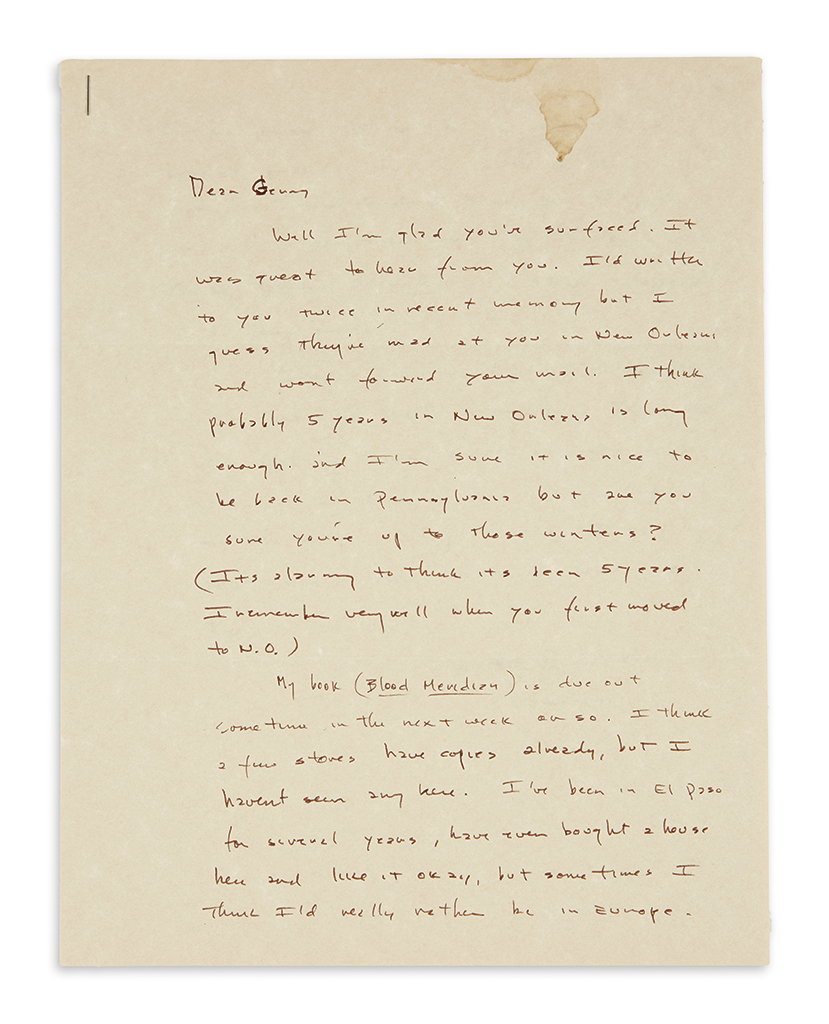 Dear Genny
Well I'm glad you've surfaced. It
was great to hear from you. I'd written
to you twice in recent memory but I
guess they're mad at you in New Orleans
and wont forward your mail. I think
probably 5 years in New Orleans is long
enough. And I'm sure it is nice to
be back in Pennsylvania but are you
sure you're up to those winters?
(Its alarming to think its been 5 years.
I remember very well when you first moved
to N.O.)
My book (Blood Meridian) is due out
sometime in the next week or so. I think
a few stores have copies already, but I
havent seen any here. I've been in El Paso
for several years, have even bought a house
here and like it okay, but sometimes I
think I'd really rather be in Europe.